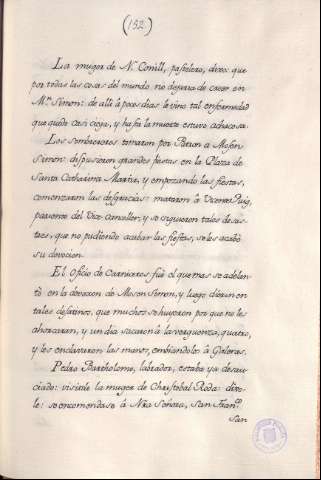 (152)
La muger de N. Conill, pastelero, dixo: que
por todas las cosas del mundo no dejara de creer en
Mn. Simon: de alli à pocos dias le vino tal enfermedad
que quedò casi ciega, y hasta la muerte estuvo achacosa.
Los Sombrereros tomaron por Patron à Mosen
Simon: dispusieron grandes fiestas en la Plaza de
Santa Catharina Martir, y empezando las fiestas,
comenzaron las desgracias: mataron à Vicente Puig,
pariente del Vice-canceller; y se siguieron tales desas-
tres, que no pudiendo acabar las fiestas, se les acabò
su devocion.
El Oficio de Carniceros fuè el que mas se adelan-
tò en la devocion de Mosen Simon, y luego dieron en
tales desatinos, que muchos se huyeron por que no les
ahorcaran, y un dia sacaron à la verguenza, quatro,
y les enclavaron las manos, embiandoles à Galeras.
Pedro Bartholome, labrador, estaba ya desau-
ciado: visitòle la muger de Christobal Roda: dixo-
le: se encomendase à Nra Señora, San Franco.
San